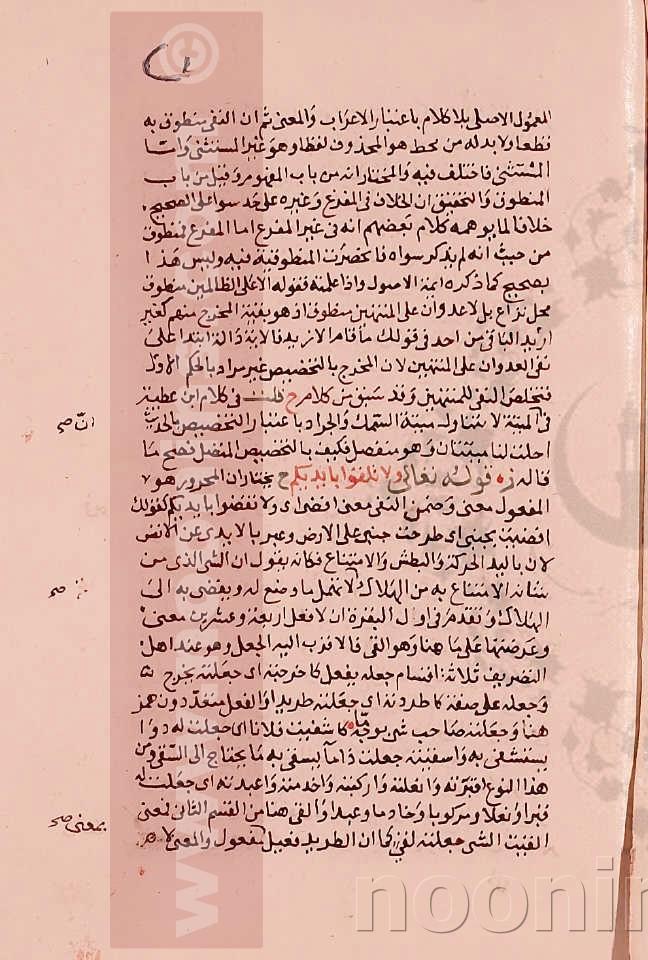 المعمول الاصلى بلا كلام باعتبار الاعراب والمعنى ثم ان النفى منطوق به
قطعا ولا بد له من محط هو المحذوف لفظا وهو غير المستثنى واما
المستثنى فاختلف فيه والمختار انه من باب المفهوم وقيل من باب
المنطوق والتحقيق ان الخلاف فى المفرغ وغيره على حد سوا على الصحيح
خلافا لما يوهمه كلام بعضهم انه فى غير المفرغ اما المفرغ فمنطوق
من حيث انه لم يذكر سواه فانحصرت المنطوقية فيه وليس هذا
بصحيح كما ذكره ايمة الاصول واذا علمته فقوله الا على الظالمين منطوق
محل نزاع بل لا عدوان على المنتهين منطوق اذ هو بقية المخرج منهم كغير
زيد الباقى من احد فى قولك ما قام الا زيد فالاية دالة ابتدا على
نفى العدوان على المنتهين لان المخرج بالتخصيص غير مراد بالحكم الاول
فتخلص النفى للمنتهين وقد سبق من كلام ح قلت فى كلام ابن عطية
فى الميتة لا يتناول ميتة السمك والجراد باعتبار التخصيص بالحديث
احلت لنا ميتتان وهو منفصل فكيف بالتخصيص المتصل فصح ما
قاله ز قوله تعالى ولا تلقوا بايديكم ح يختار ان المجرور هو
المفعول معنى وضمن القى معنى افضى اى ولا تفضوا بايديكم كقولك
افضيت بجنبى اى طرحت جنبى على الارض وعبر بالايدى عن الانفس
لان باليد الحركة والبطش والامتناع فكانه يقول ان الشى الذى من
شانه الامتناع به من الهلاك لا يهمل ما وضع له ويفضى به الى
الهلاك وتقدم فى اول البقرة ان لافعل اربعة وعشرين معنى
وعرضتها على ما هنا وهو القى فالاقرب اليه الجعل وهو عند اهل
التصريف ثلاثة اقسام جعله يفعل كاخرجته اى جعلته يخرج
وجعله على صفة كاطردته اى جعلته طريدا والفعل متعد دون همز
هنا وجعلته صاحب شى بوجه ما كاشفيت فلانا اى جعلت له دوا
يستشفى به واسقيته جعلت ذا ما يسقى به ما يحتاج الى السقى ومن
هذا النوع اقبرته وانعلته واركبته واخدمته واعبدته اى جعلت له
قبرا ونعلا ومركوبا وخادما وعبدا والقى هنا من القسم الثانى فمعنى
القيت الشى جعلته لقى كما ان الطريد فعيل مفعول والمعنى لا
انّ صح
صح
بمعنى صح
noonin